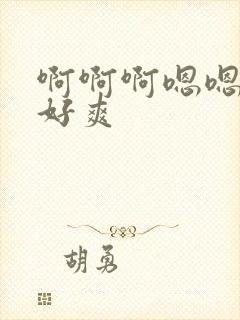 啊啊啊嗯嗯
好爽
胡勇